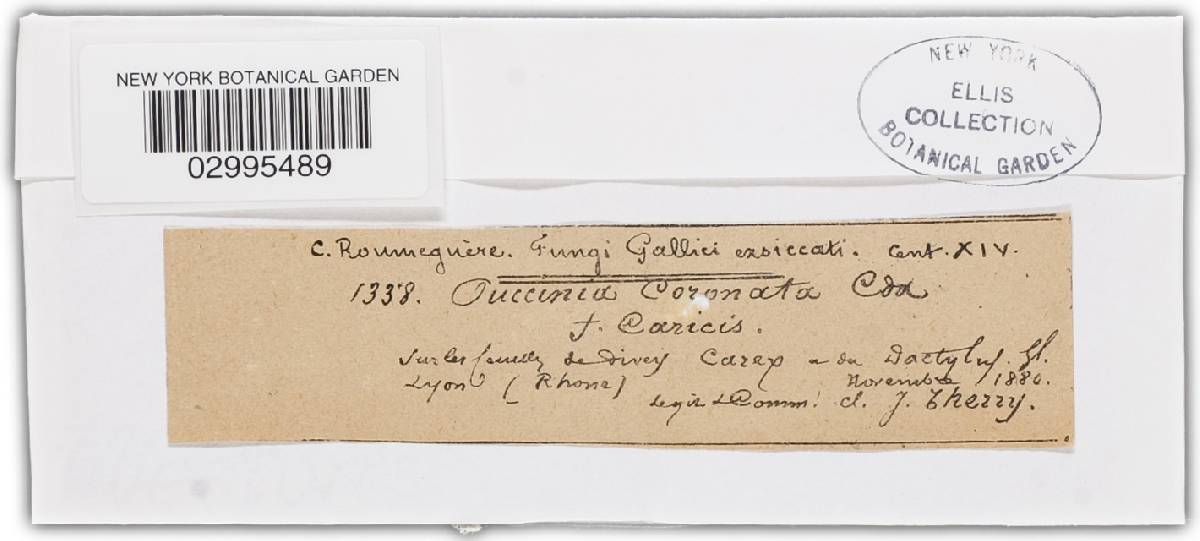 NEW YORK BOTANICAL GARDEN
02995489
NEW YORK
ELLIS
COLLECTION
BOTANICAL GARDEN
C. Roumeguère. Fungi Gallici exsiccati. Cent. XIV.
1338. Puccinia Coronata Cda
f. Caricis.
Sur les feuilles de divers Carex & du Dactylus. Gl.
Lyon (Rhone) Novembre 1880.
legit & Comm. cl. J. Therry.